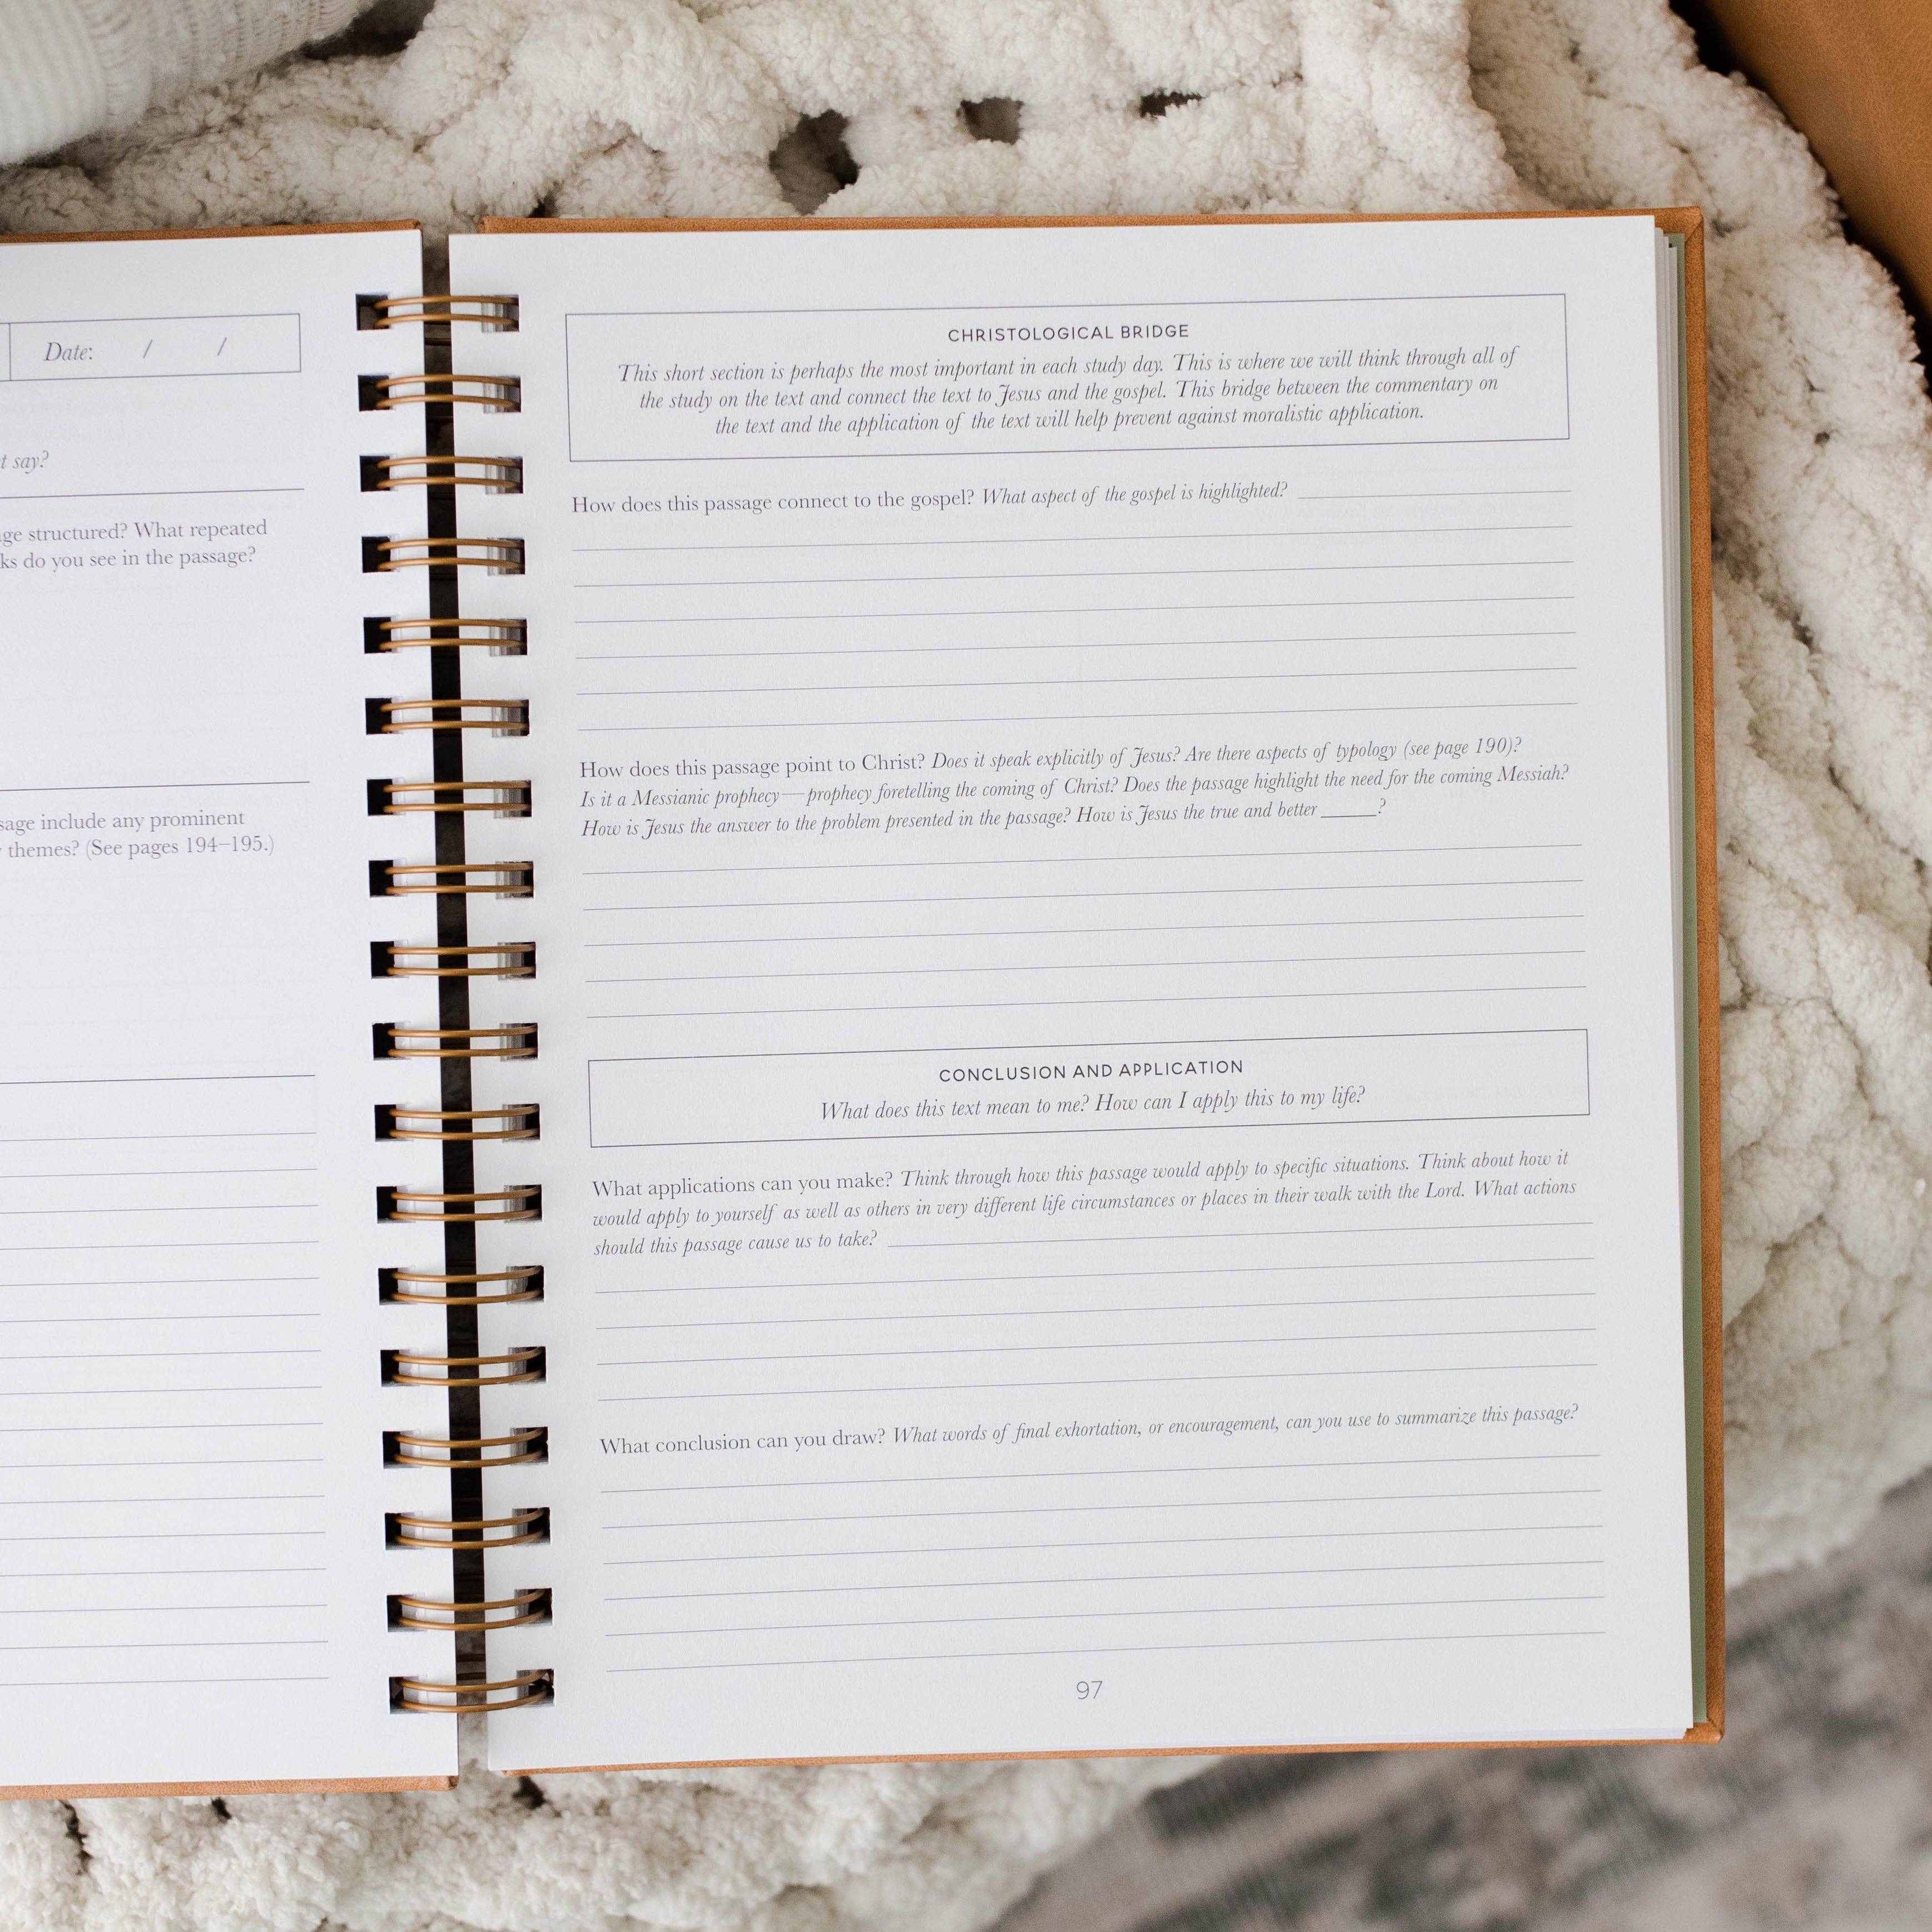 Date: / /
say?
structured? What repeated
do you see in the passage?
include any prominent
themes? (See pages 194–195.)
CHRISTOLOGICAL BRIDGE
This short section is perhaps the most important in each study day. This is where we will think through all of
the study on the text and connect the text to Jesus and the gospel. This bridge between the commentary on
the text and the application of the text will help prevent against moralistic application.
How does this passage connect to the gospel? What aspect of the gospel is highlighted?
How does this passage point to Christ? Does it speak explicitly of Jesus? Are there aspects of typology (see page 190)?
Is it a Messianic prophecy—prophecy foretelling the coming of Christ? Does the passage highlight the need for the coming Messiah?
How is Jesus the answer to the problem presented in the passage? How is Jesus the true and better ______?
CONCLUSION AND APPLICATION
What does this text mean to me? How can I apply this to my life?
What applications can you make? Think through how this passage would apply to specific situations. Think about how it
would apply to yourself as well as others in very different life circumstances or places in their walk with the Lord. What actions
should this passage cause us to take?
What conclusion can you draw? What words of final exhortation, or encouragement, can you use to summarize this passage?
97